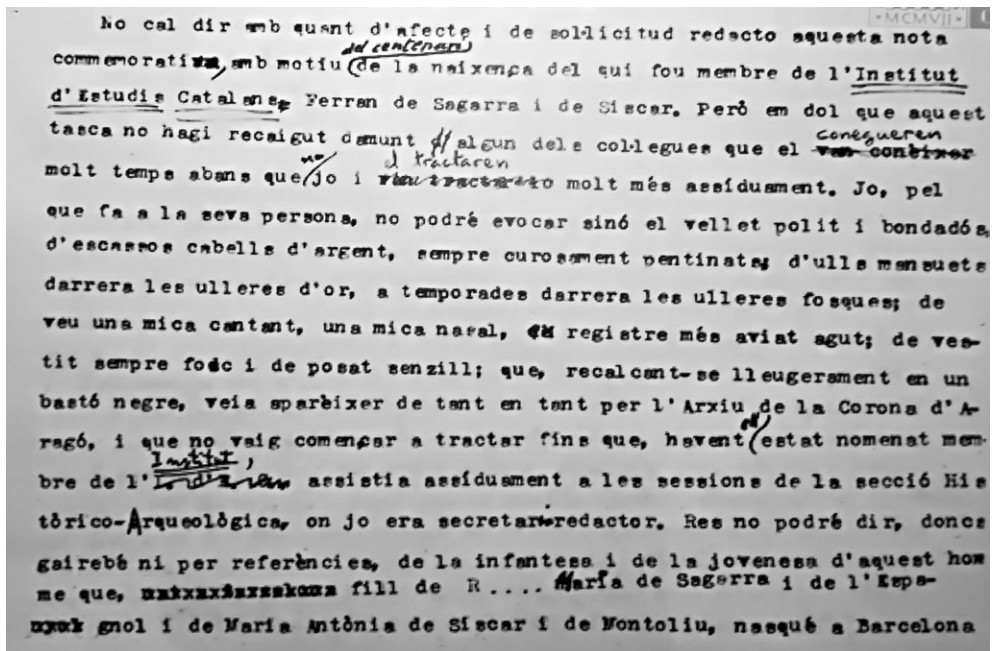 ·MCMVII·
No cal dir amb quant d'afecte i de sol·licitud redacto aquesta nota
del centenari
commemorativa, amb motiu de la naixença del qui fou membre de l'Institut
d'Estudis Catalans, Ferran de Sagarra i de Siscar. Però em dol que aquest
tasca no hagi recaigut damunt d'algun dels col·legues que el van conèixer
conegueren
no el tractaren
molt temps abans que jo i molt més assíduament. Jo, pel
que fa a la seva persona, no podré evocar sinó el vellet polit i bondadós,
d'escassos cabells d'argent, sempre curosament pentinats; d'ulls mansuets
darrera les ulleres d'or, a temporades darrera les ulleres fosques; de
veu una mica cantant, una mica nasal, registre més aviat agut; de ves-
tit sempre fosc i de posat senzill; que, recalcant-se lleugerament en un
bastó negre, veia aparèixer de tant en tant per l'Arxiu de la Corona d'A-
ell
ragó, i que no vaig començar a tractar fins que, havent estat nomenat mem-
Institut,
bre de l' assistia assíduament a les sessions de la secció His
tòrico-Arqueològica, on jo era secretari redactor. Res no podré dir, doncs
gairebé ni per referències, de la infantesa i de la jovenesa d'aquest hom
me que, fill de R.... Maria de Sagarra i de l'Espa-
gnol i de Maria Antònia de Siscar i de Montoliu, nasqué a Barcelona